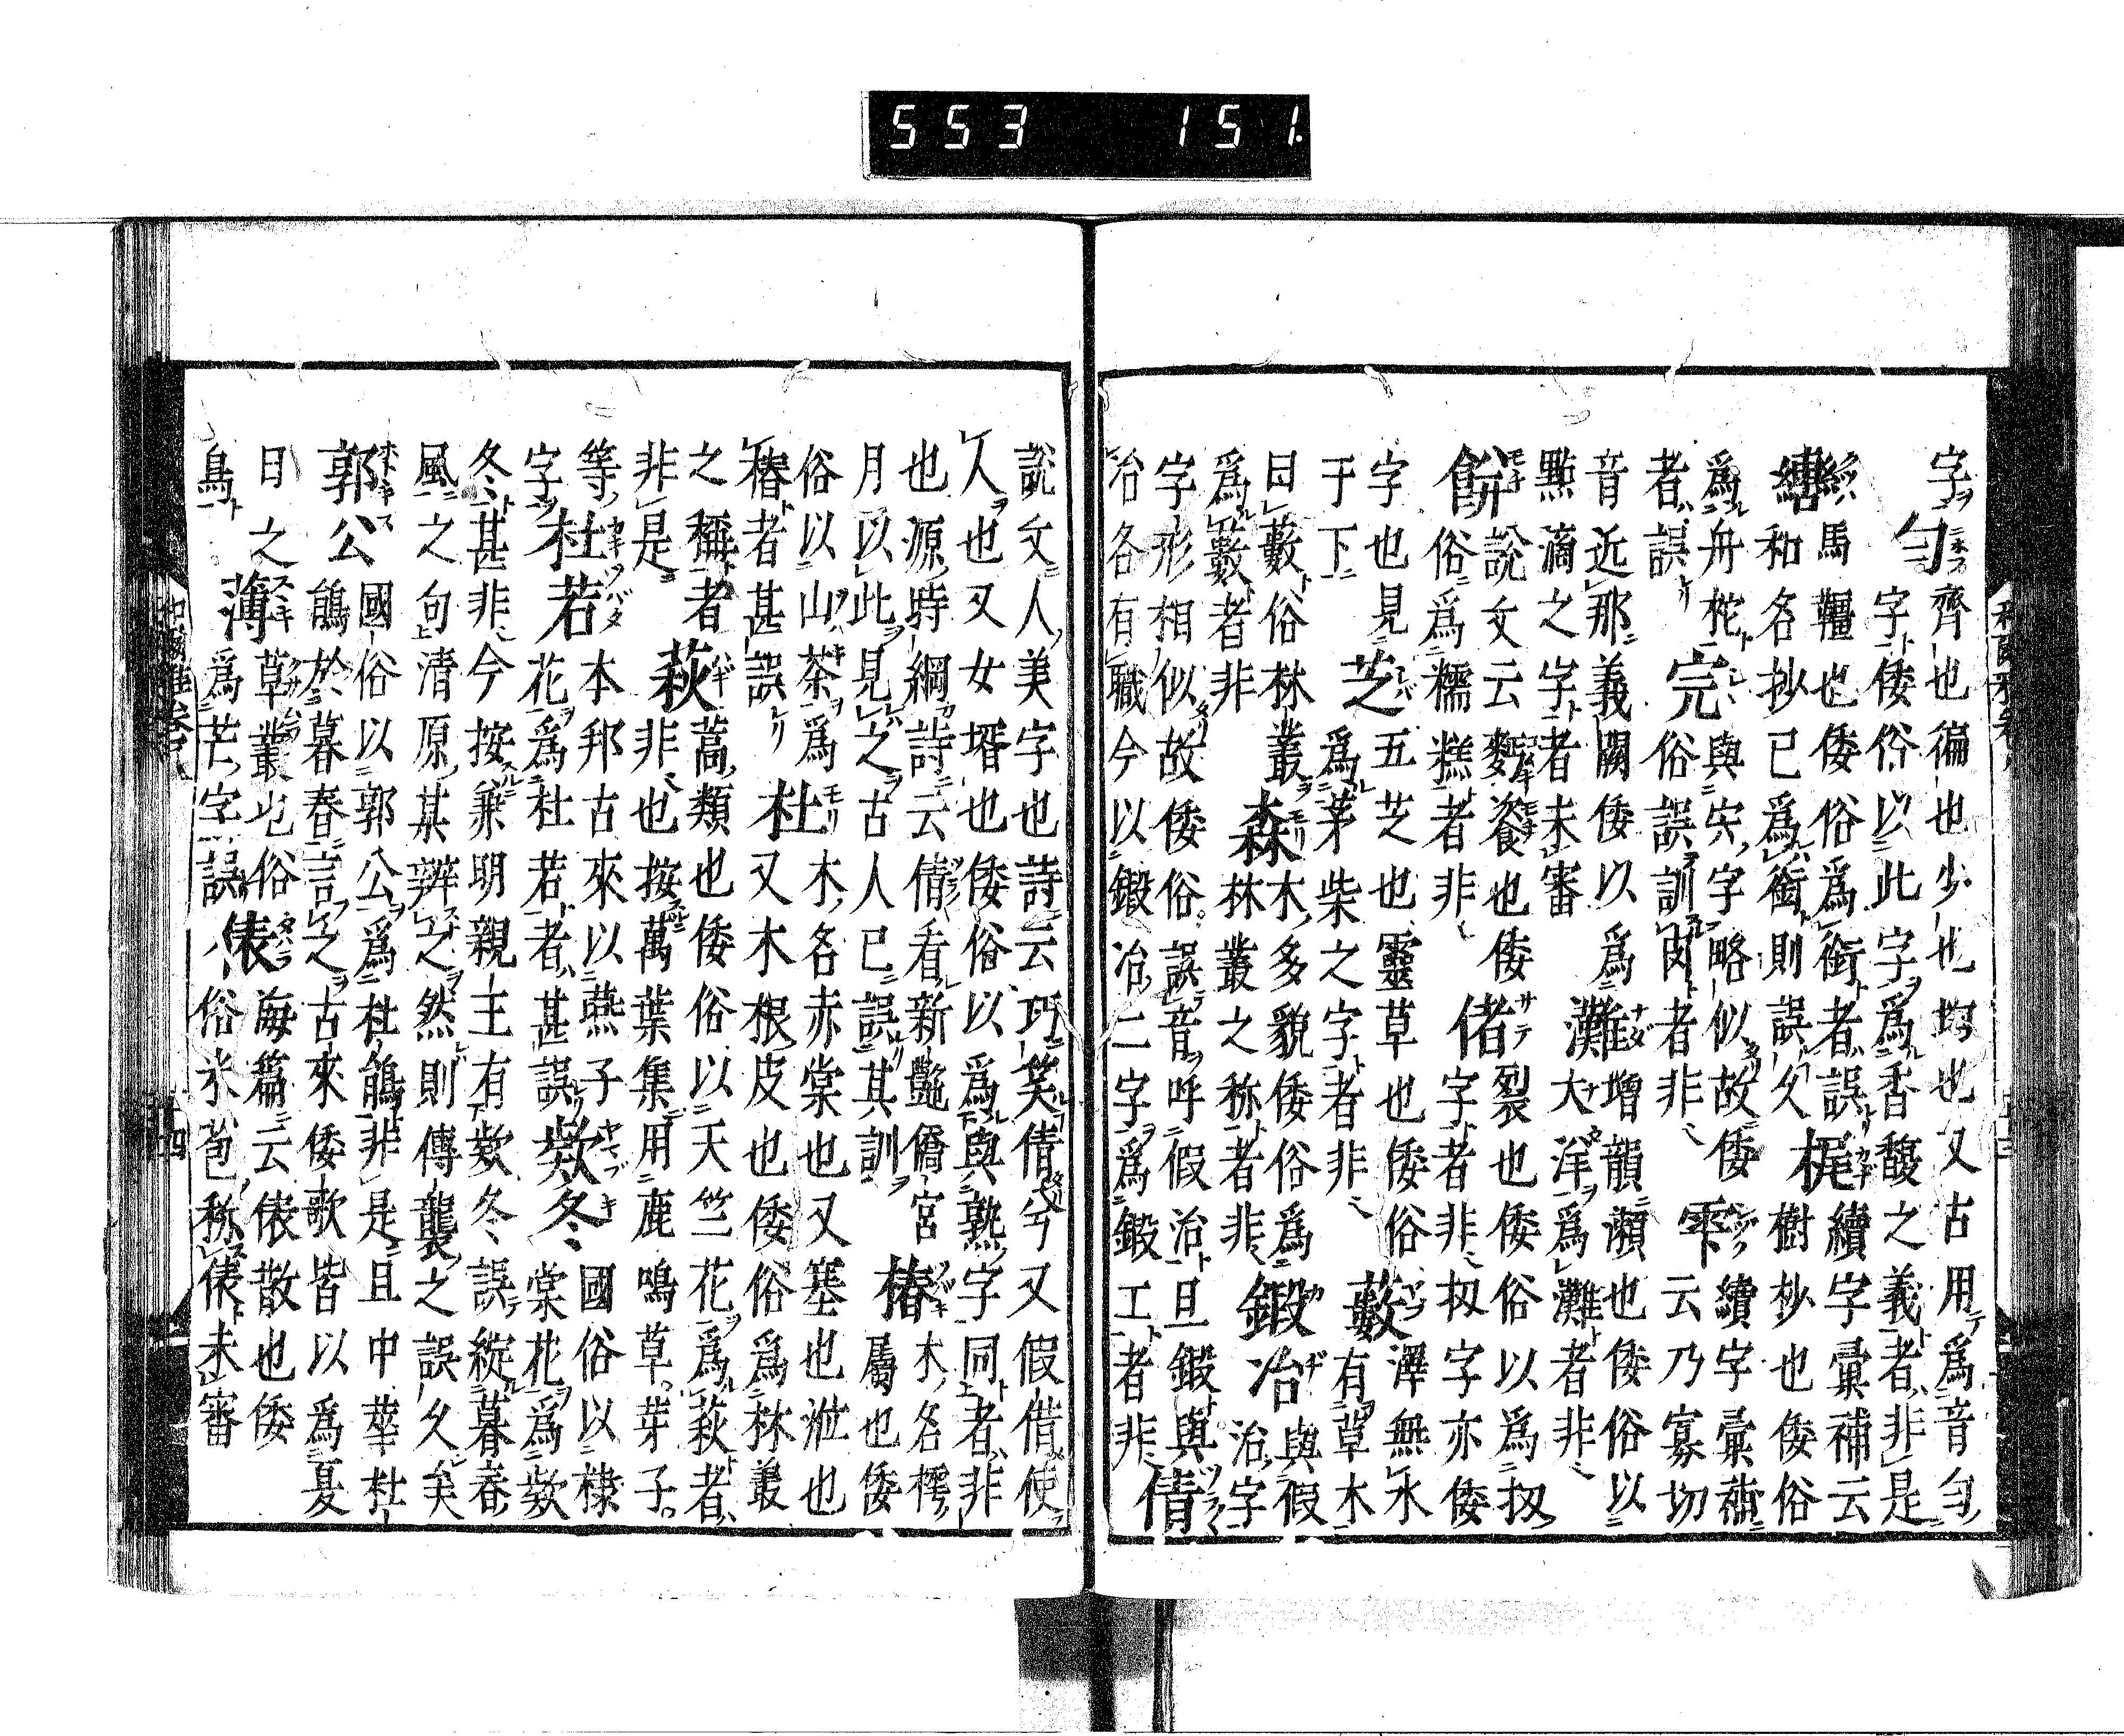 553 151
字勻齊也徧也少也均也又古用爲音勻
字倭俗以此字爲香馥之義者非是
轡馬韁也倭俗爲銜者誤梶續字彙補云
和名抄已爲銜則誤久樹杪也倭俗
爲舟柁完與宍字略似故倭雫續字彙蘸
者誤俗誤訓肉者非云乃寡切
音近那義闕倭以爲灘增韻瀬也倭俗以
點滴之字者未審大洋爲灘者非
餠說文云麪餈也倭偖裂也倭俗以爲扨
俗爲糯糕者非字者非扨字亦倭
字也見芝五芝也靈草也倭俗藪澤無水
于下爲茅柴之字者非有草木
曰藪俗林叢森木多貌倭俗爲鍛冶與假
爲籔者非林叢之称者非冶字
字形相似故倭俗誤音呼假治旦鍛與倩
冶各有職今以鍛冶二字爲鍛工者非
說文人美字也詩云巧笑倩兮又假借使
人也又女壻也倭俗以爲與熟字同者非
也源時綱詩云倩看新艶僑宮椿木名樗
月以此見之古人已誤其訓屬也倭
俗以山茶爲杜木名赤棠也又塞也泚也
椿者甚誤又木根皮也倭俗爲林叢
之稱者萩蒿類也倭俗以天竺花爲萩者
非是非也按萬葉集用鹿鳴草芽子
等杜若本邦古來以燕子欵冬國俗以棣
字花爲杜若者甚誤棠花爲欵
冬甚非今按兼明親王有欵冬誤綻暮春
風之句清原其辨之然則傳襲之誤久矣
郭公國俗以郭公爲杜鵑非是且中華杜
鵑於暮春言之古來倭歌皆以爲夏
日之薄草叢也俗俵海篇云俵散也倭
鳥爲芒字誤俗米苞称俵未審